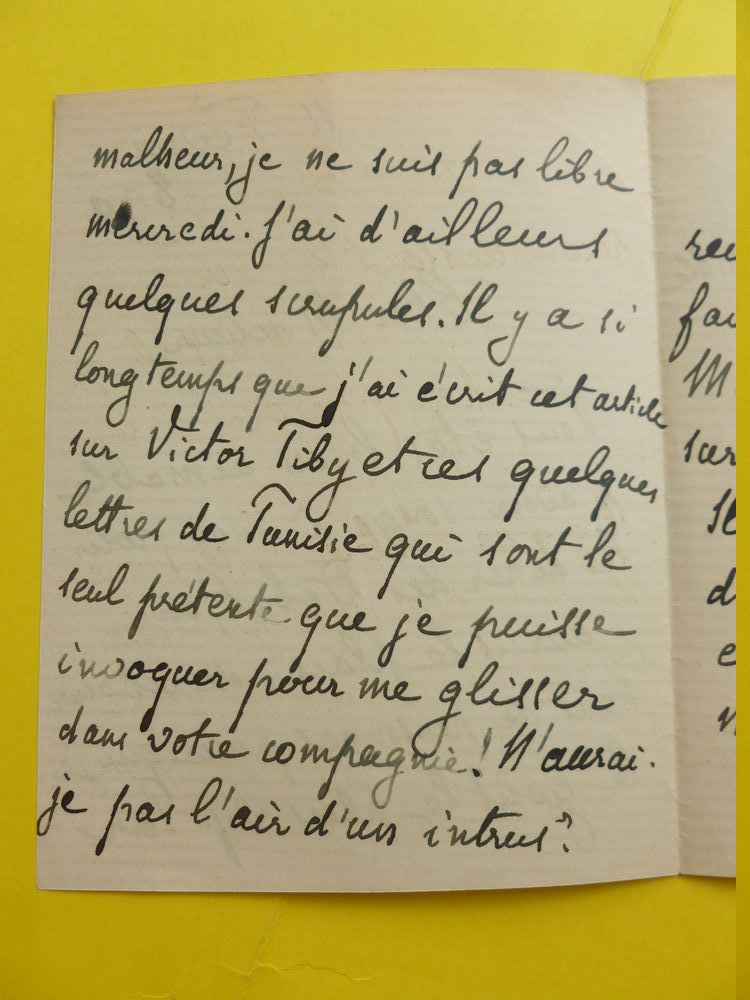 malheur, je ne suis pas libre
mercredi. J'ai d'ailleurs
quelques scrupules. Il y a si
longtemps que j'ai écrit cet article
sur Victor Tiby et ces quelques
lettres de Tunisie qui sont le
seul prétexte que je puisse
invoquer pour me glisser
dans votre compagnie! N'aurai-
je pas l'air d'un intrus?